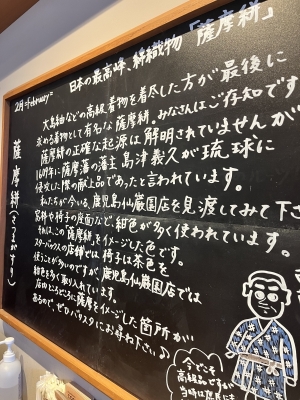 2月=February=
日本の最高峰、絣織物「薩摩絣」
薩摩絣(さつまがすり)
大島紬などの高級着物を着尽した方が最後に
求める着物として有名な薩摩絣。みなさんはご存知です
薩摩絣の正確な起源は解明されていませんが
1609年に薩摩藩の藩主 島津義久が琉球に
侵攻した際の献上品であったと言われています。
私たちが今いる、鹿児島仙巌園店を見渡してみて下
椅子の座面など、紺色が多く使われています。
それは、この「薩摩絣」をイメージした色です。
スターバックスの店舗では 椅子は茶色を
使うことが多いのですが 鹿児島仙巌園店では
紺色を多く取り入れています。
店内ところどころに薩摩をイメージした箇所が
あるので、ぜひバリスタにお尋ね下さい♪
今でこそ
高級品ですが
当時は庶民にも